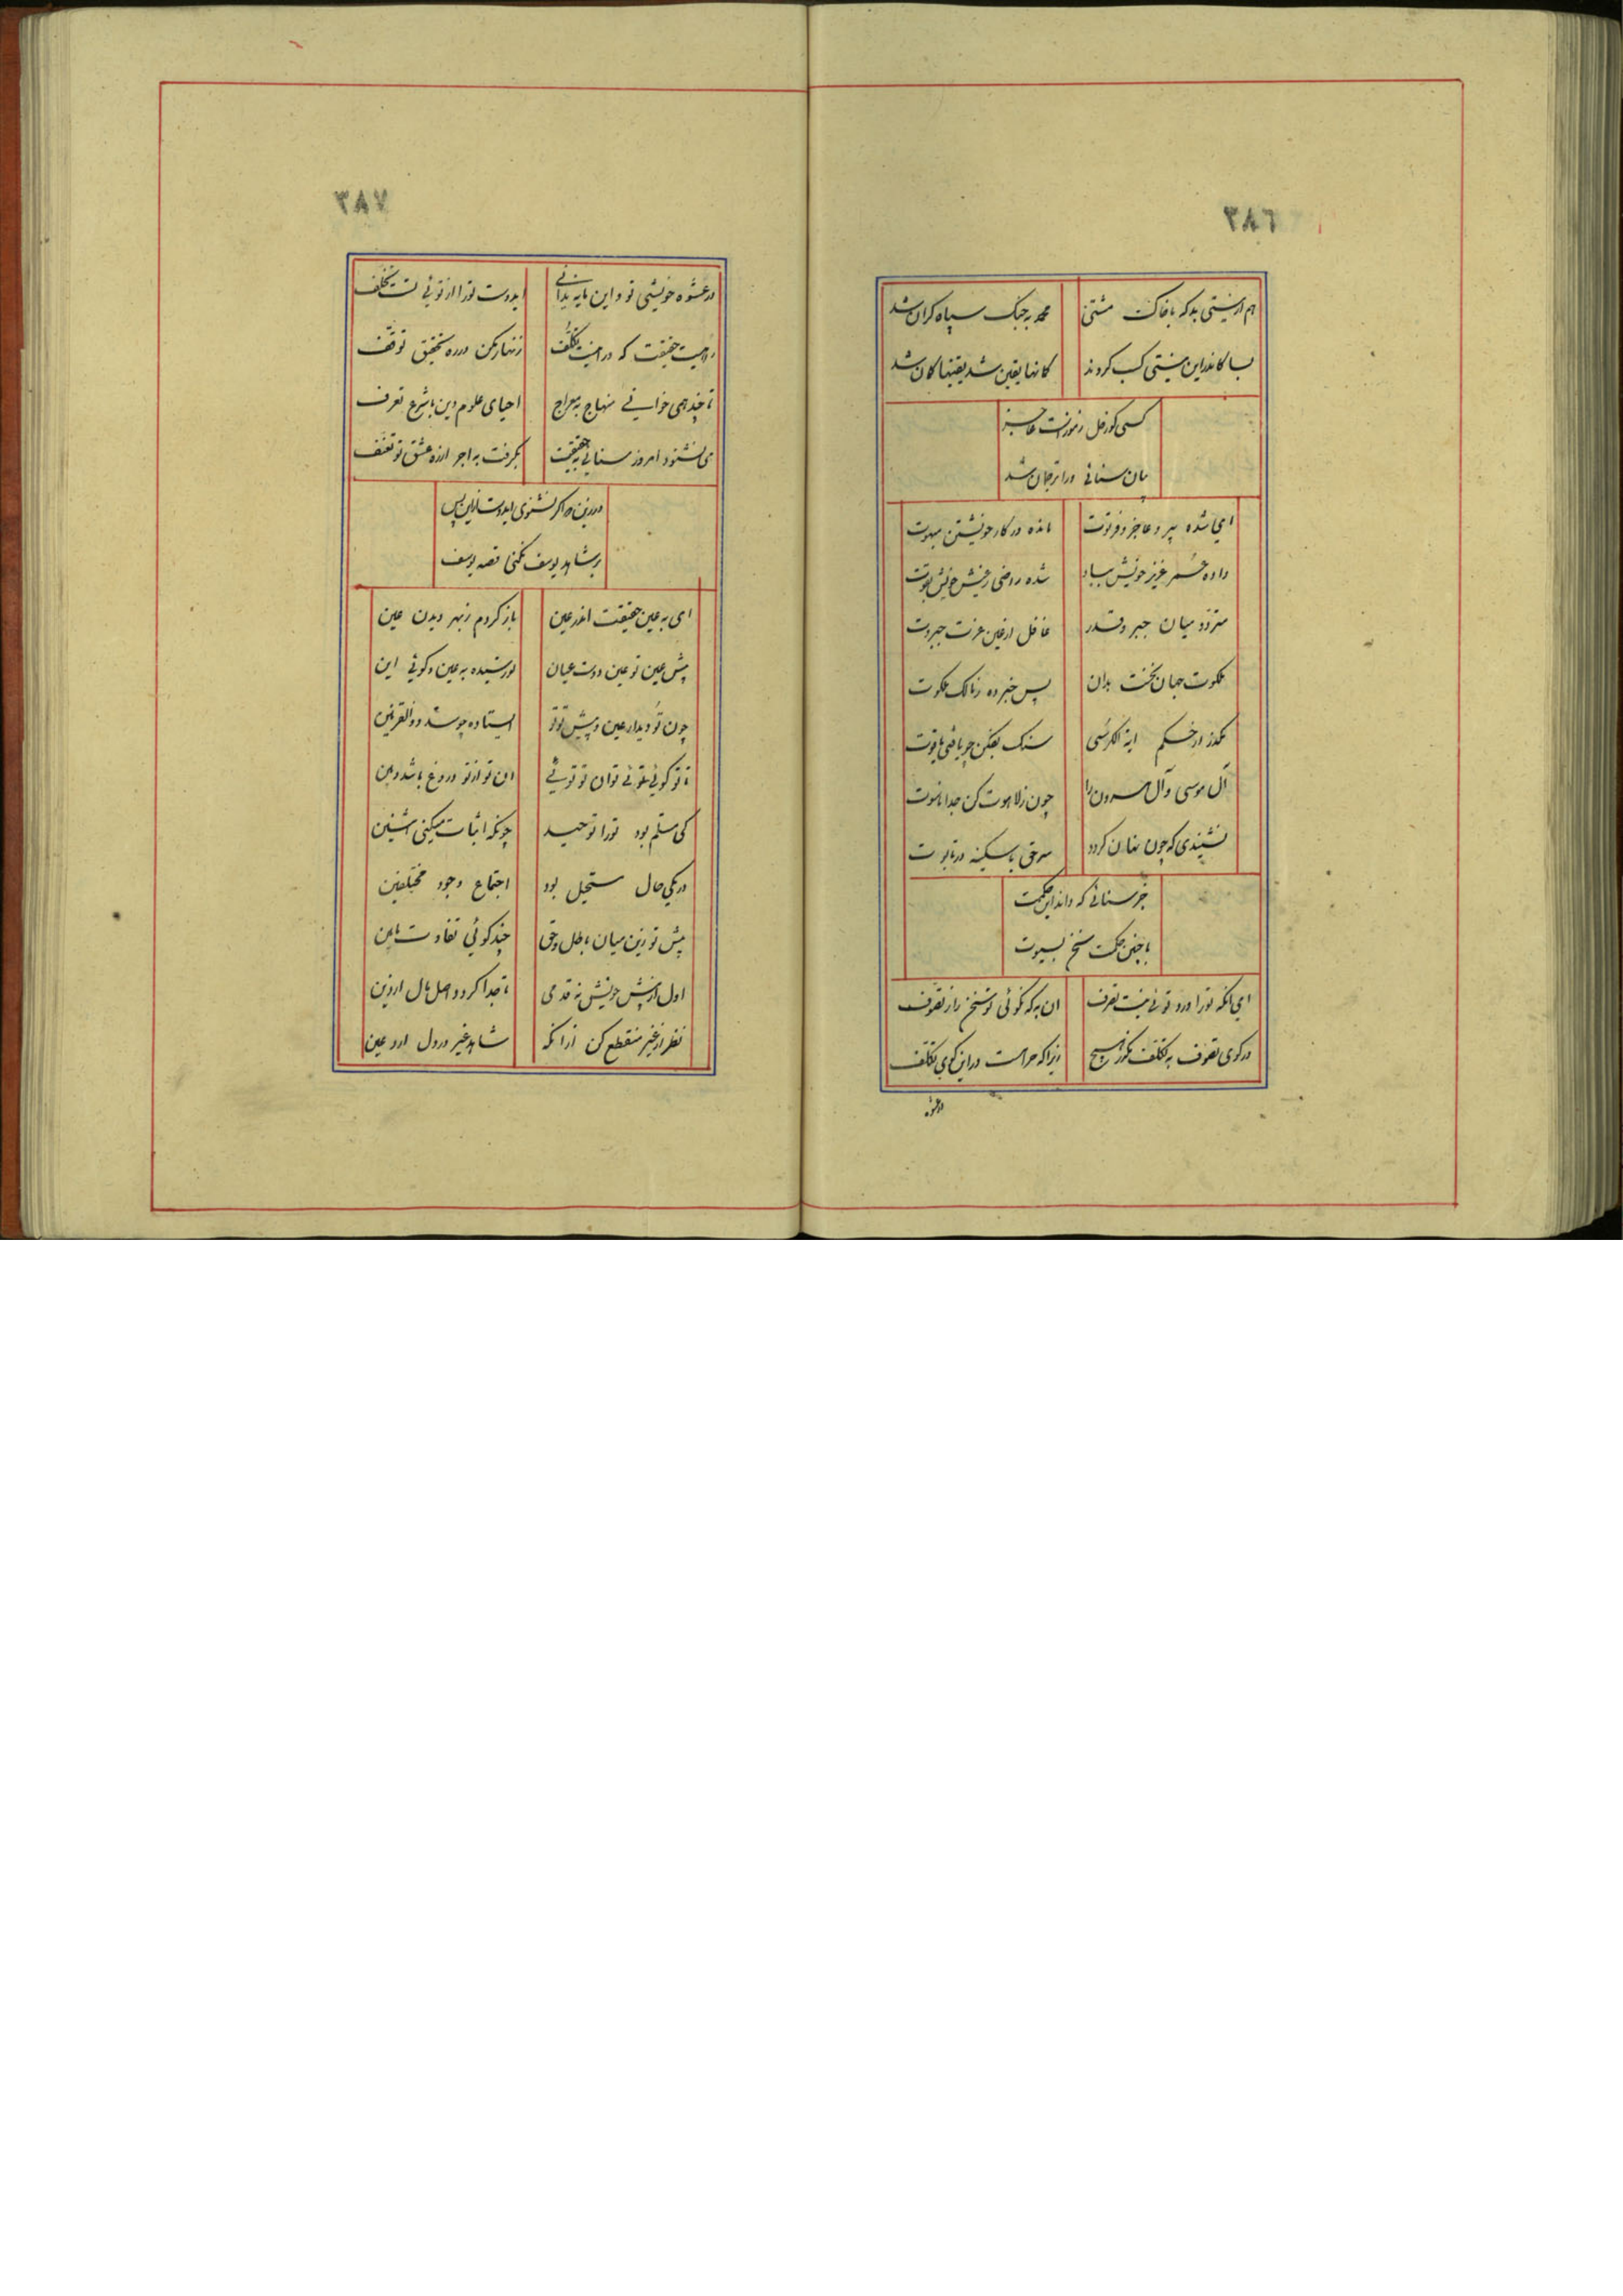 ٣٨٦
هم از نیستی بد که با خاک مشتی محمد به جنگ سپاه گران شد
بسا کاندر این نیستی کسب کردند گمانها یقین شد یقینها گمان شد
کسی کو ز حل رموزست عاجز
بیان سنائی ورا ترجمان شد
ای شده پیر و عاجز و فرتوت مانده در کار خویشتن مبهوت
داده عمر عزیز خویش بباد شده راضی ز عیش خویش بقوت
متردد میان جبر و قدر غافل از عین عزت جبروت
ملکوت جهان نخست بدان پس خبر ده ز مالک ملکوت
بگذر از حکم ایة الکرسی سنگ بفکن چو یافتی یاقوت
آل موسی و آل هرون را چون ز لاهوت کن جدا ناسوت
نشنیدی که چون نهان کردد سر حق با سکینه در تابوت
جز سنائی که داند این حکمت
با چنین حکمت سخن بسیوت
ای آنکه تو را در تو توئی نیست تصرف آن به که نگوئی تو سخن را ز تصوف
در کوی تصوف به تکلف مگذر هیچ زیرا که حرامست در این کوی تکلف
در عشوه
٣٨٧
در عشوه خویشی تو و این مایه ندانی ایدوست تو را از تو توئی تست تخلف
راهیست حقیقت که در او نیست تکلف زنهار مکن در ره تحقیق توقف
تا چند همی خوانی منهاج به معراج احیای علوم دین با شرع تعرف
می نشنود امروز سنائی به حقیقت بگرفت به اجر از ره عشق تو تعفف
در زین ما گر نشنوی ایدوست ازین پس
بر شاهد یوسف نکنی قصه یوسف
ای به عین حقیقت اندر عین باز کردم ز بهر دیدن عین
پیش عین تو عین دوست عیان تو رسیده به عین و کوئی این
چون تو دیدار عین و پیش تو تو ایستاده چو سد ذوالقرنین
تا تو کوئی توئی توان تو توئی آن تو از تو دروغ باشد و مین
کی مسلم بود تو را توحید چونکه اثبات میکنی اثنین
در یکی حال مستحیل بود اجتماع وجود مختلفین
پیش تو زین میان باطل و حق چند کوئی تفاوت مابین
اول از پیش خویش نه قدمی تا جدا کردد اصل مال از دین
نظر از غیر منقطع کن از آنکه شاهد غیر در دل ارد عین